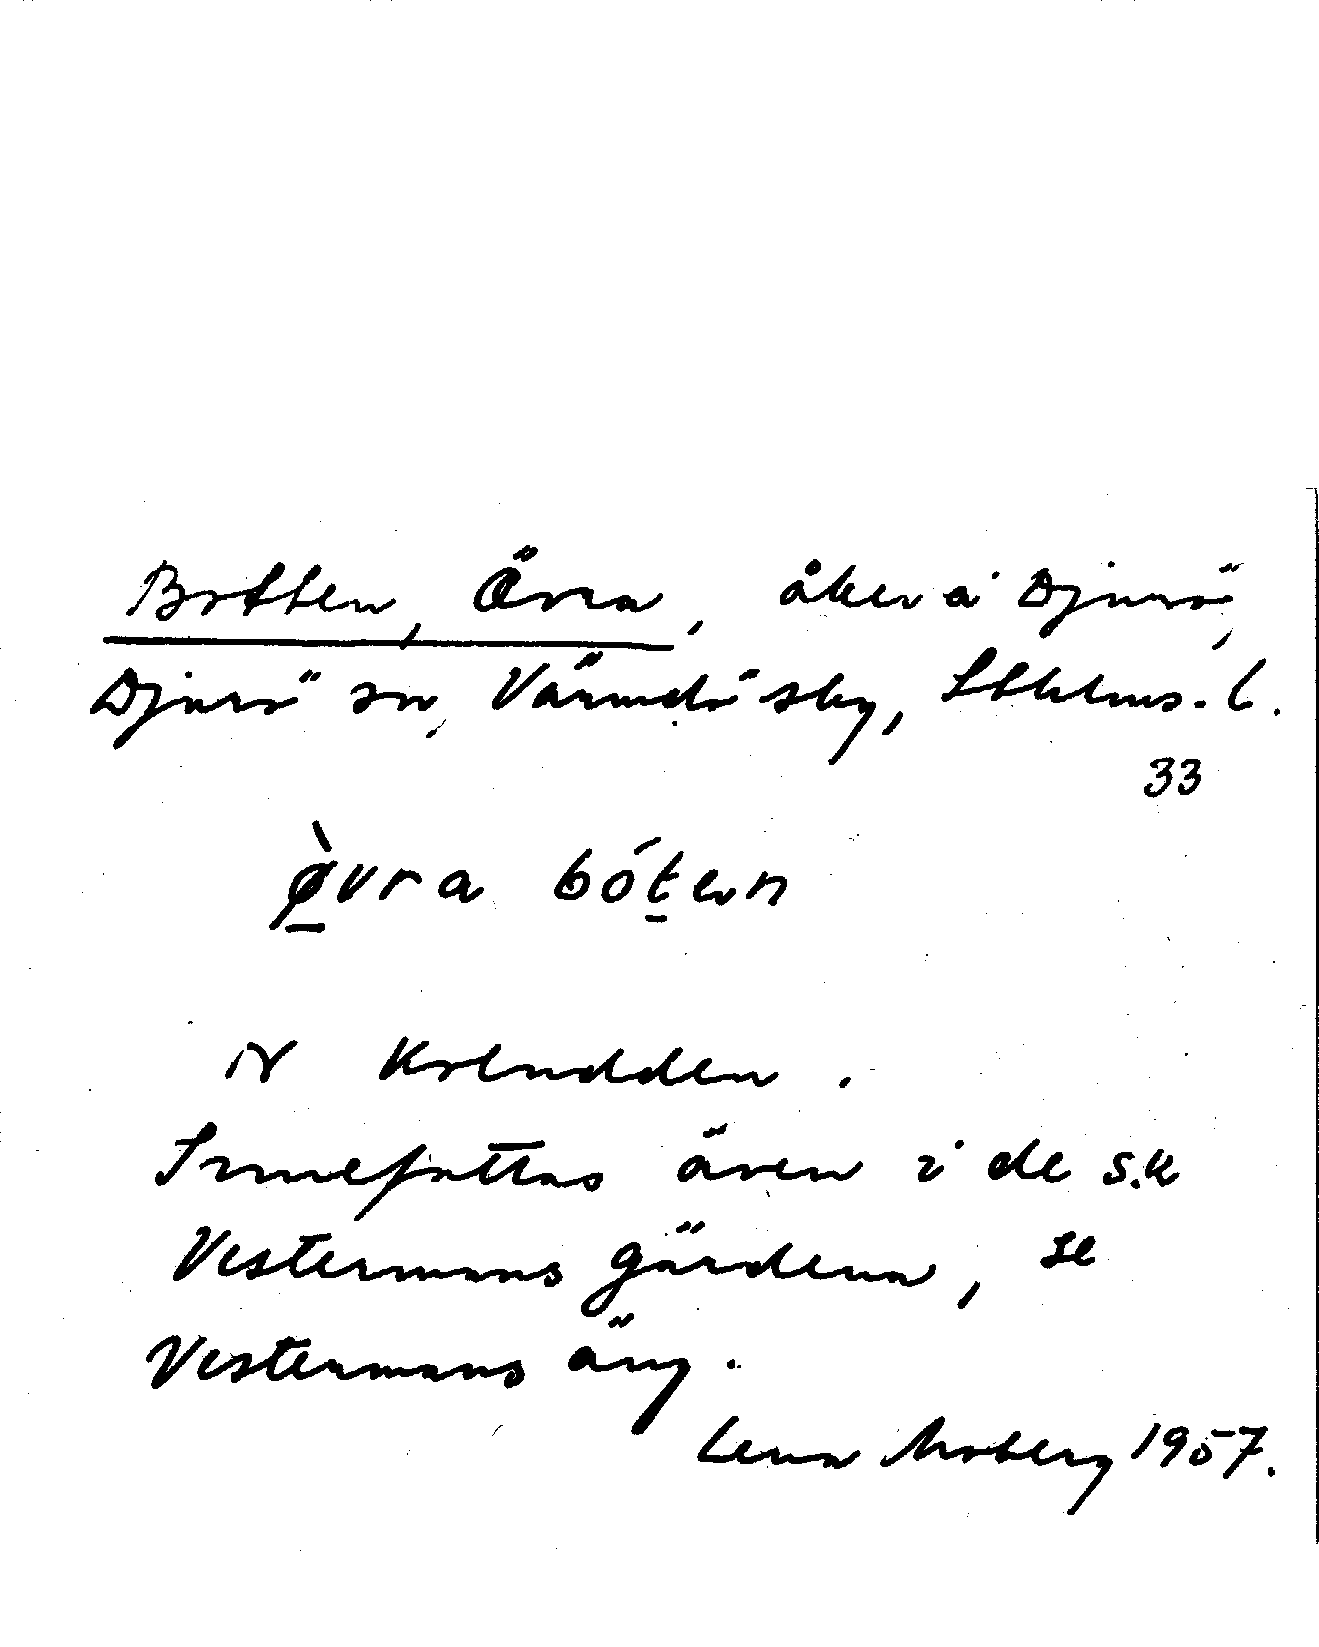 Botten, Övra, åker å Djurö,
Djurö sn, Värmdö sky, Sthlms. l.
33
ø̀vra bót̠en
N Koludden.
Innefattas även i de s.k
Vestermans gärdena, se
Vestermans äng.
Lena Moberg 1957.